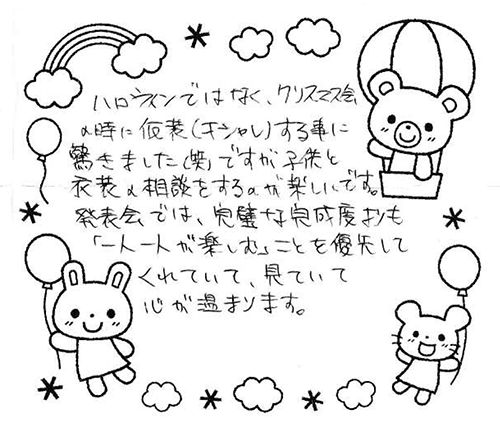 ハロウィンではなく、クリスマス会
の時に仮装(オシャレ)する事に
驚きました(笑)ですが子供と
衣装の相談をするのが楽しいです。
発表会では、完璧な完成度よりも
「一人一人が楽しむ」ことを優先して
くれていて、見ていて
心が温まります。